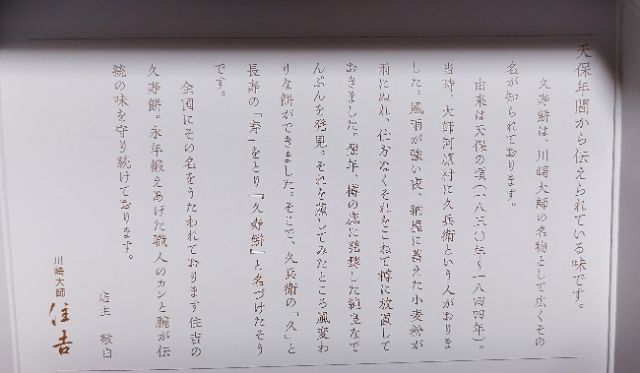 天保年間から伝えられている味です。
久寿餅は、川崎大師の名物として広くその
名が知られております。
由来は天保の頃（一八三〇年～一八四四年）。
当時、大師河原村に久兵衛という人がおりま
した。風雨が強い夜、納屋に蓄えた小麦粉が
雨にぬれ、仕方なくそれをこねて樽に放置して
おきました。翌年、樽の底に発酵した純良なで
んぷんを発見。それを蒸してみたところ風変わ
りな餅ができました。そこで、久兵衛の「久」と
長寿の「寿」をとり「久寿餅」と名づけたそう
です。
全国にその名をうたわれております住吉の
久寿餅。永年鍛えあげた職人のカンと腕が伝
統の味を守り続けております。
店主 敬白
川崎大師 住吉